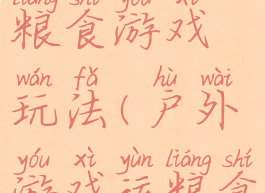 liáng shí yóu xì
粮食游戏
wán fǎ hù wài
玩法(户外
yóu xì yùn liáng shí
游戏运粮食